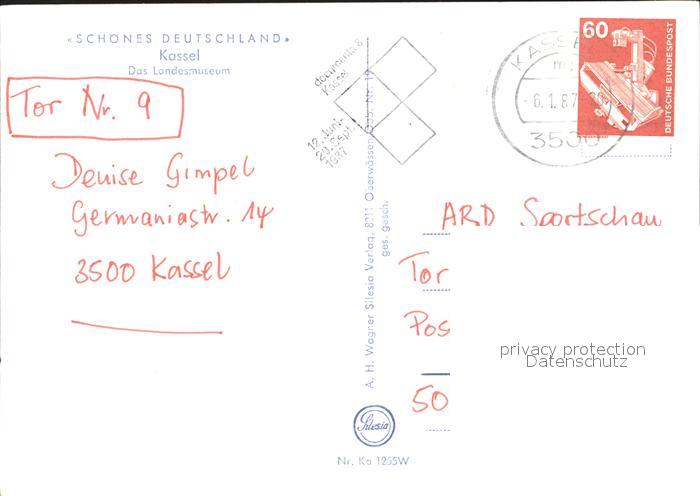 «SCHÖNES DEUTSCHLAND»
Kassel
Das Landesmuseum
Tor Nr. 9
Denise Gimpel
Germaniastr. 14
3500 Kassel
documenta 8
Kassel
12. Juni-
20. Sept.
1987
A. H. Wagner Silesia Verlag, 8211 Oberwössen
ges. gesch.
Silesia
Nr. Ka 1255W
- 6.1.87
3500
60
DEUTSCHE BUNDESPOST
ARD Sportschau
Tor
Pos
50
privacy protection
Datenschutz